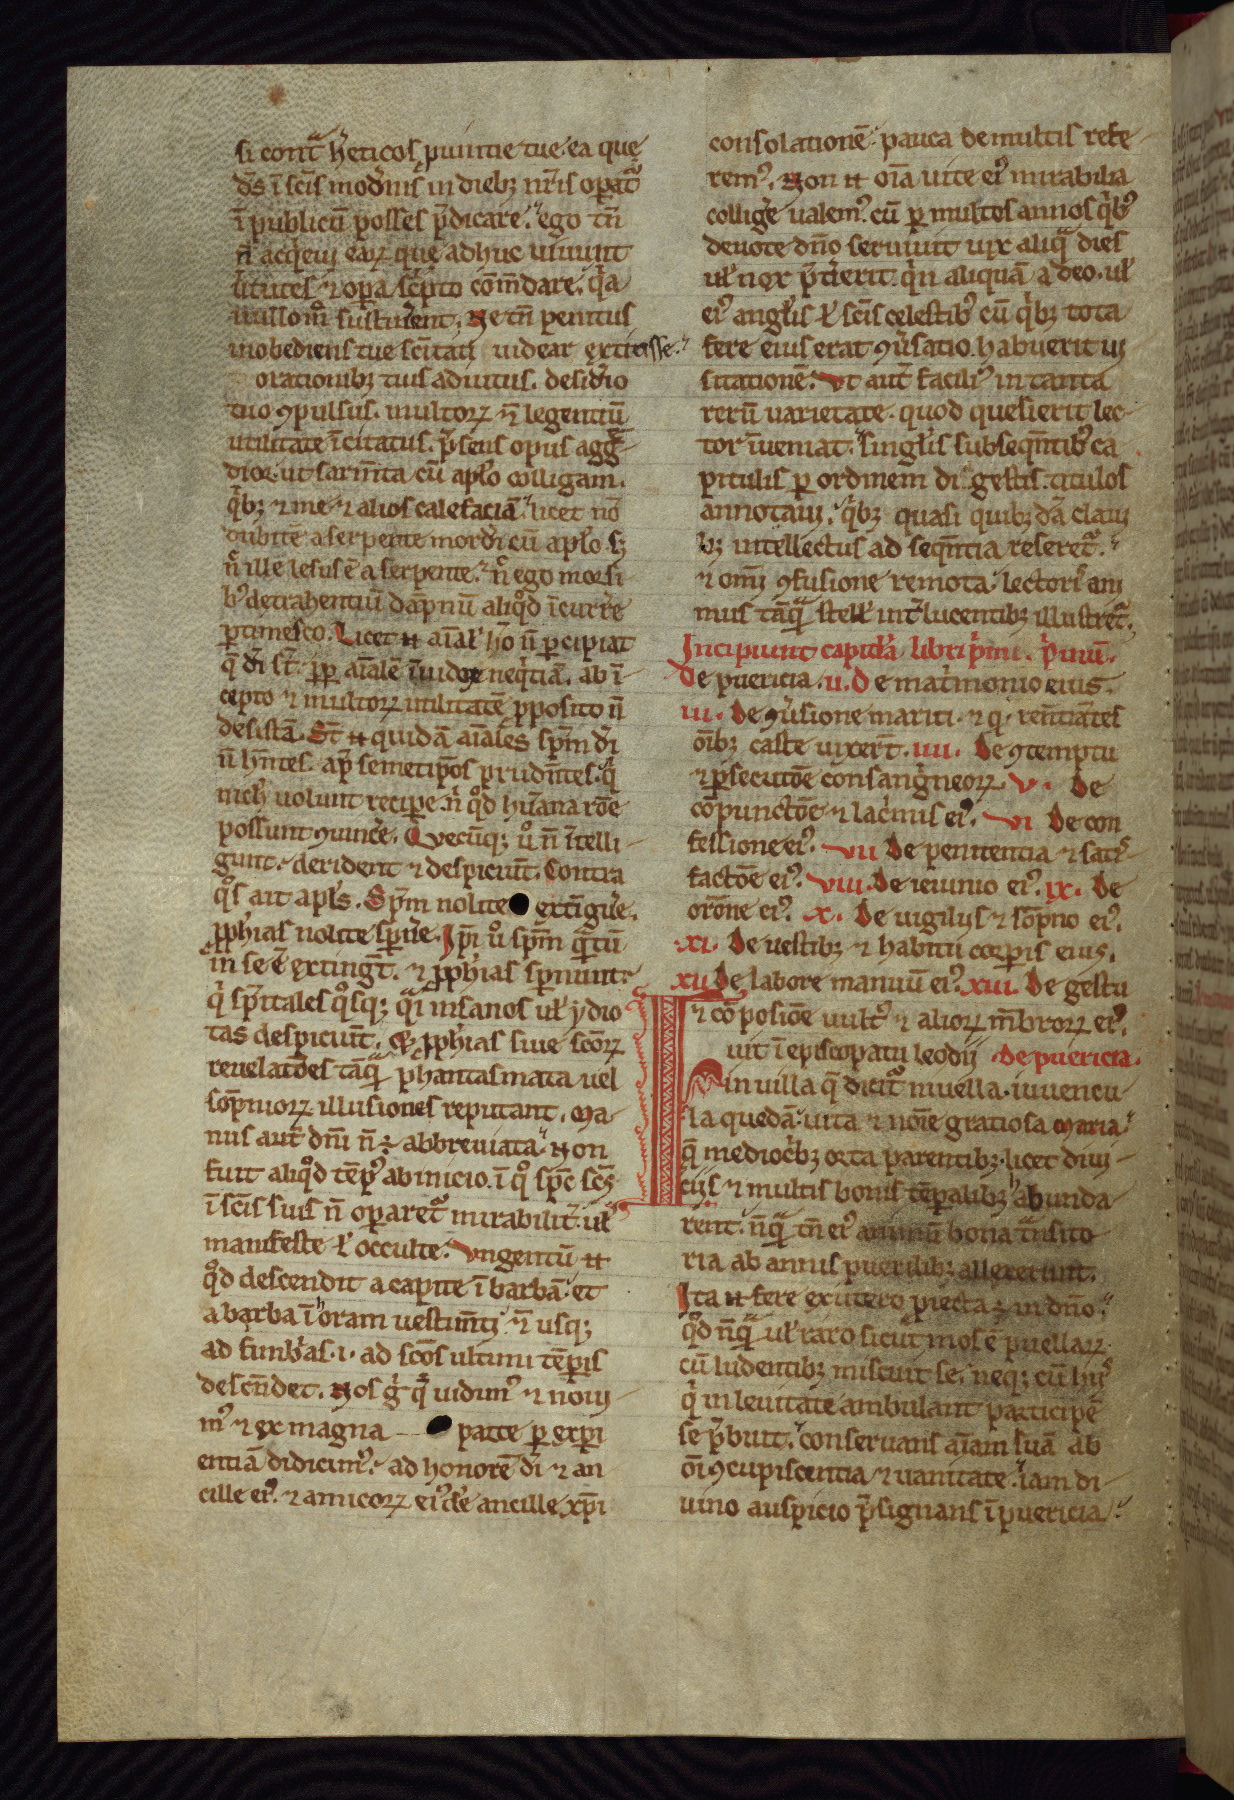 si cont̃ h̾eticos puintie tue. ea que
ds̃ ĩ scĩs mod̾nis in dieb; nr̃is opat̾
ĩ publicũ posses p̃dicare. ego tñ
ñ acq̾eui eaꝝ que adhuc uiuunt
ũtutes ⁊ opa sc̾pto cõm̃dare. q̾a
nullo mº sustin̾ent. Ne tñ penitus
inobediens tue scĩtati uidear extitisse.
orationib; tuis adiutus. desid̾io
tuo ꝯpulsus. multoꝝ ⁊̃ legentiũ
utilitate ĩcitatus. p̃sens opus agg̃
dior. ut sarm̃ta cũ aplo colligam.
q̾b; ⁊ me ⁊ alios calefaciã. licet nõ
dubitẽ a serpente mord̾i cũ aplo. sꝫ
ñ ille lesus ẽ a serpente. ñ ego morsi
bꝰ detrahentiũ dãpnũ aliqͦd ĩcurr̾e
ꝑtimesco. Licet ⁊̃ aĩal̾ hõ ñ ꝑcipiat
q̃ dĩ st̃. ꝓp̃ aĩaliũ ĩuidoꝝ neq̾tiã. ab ĩ
cepto ⁊ multoꝝ utilitatẽ ꝓposito ñ
desistã. St̃ ⁊̃ quidã aĩales sp̃m dĩ
ñ hñtes. ap̃ semetip̃os prud̃ntes. q̾
nich̾ uolunt recip̾e ñ qͦd hũana rõe
possunt ꝯuinc̾e. Quecũq; uͦ ñ ĩtelli
gunt. derident ⁊ despiciũt. Contra
qͦs ait apl̾s. Sp̃m nolite extingu̾e.
ꝓph̾ias nolite sp̾n̾e. Ip̃i uͦ sp̃m q̃ntũ
in se ẽ extingũt. ⁊ ꝓph̾ias sp̾nunt.
q̾ sp̃itales qͦsq; q̾i insanos ul̾ ydio
tas despiciũt. Et ꝓph̾ias siue scõꝝ
reuelatões tãq̃ phantasmata uel
sõpnioꝝ illusiones reputant. Ma
nus aut̃ dñi ñ ẽ abbreuiata. Non
fuit aliqͦd tẽpꝰ ab inicio. ĩ qͦ sp̃c scs̃
ĩ scĩs suis ñ oparet̾ mirabilit̾. ul̾
manifeste ul̾ occulte. Vngentũ ⁊̃
qͦd descendit a capite ĩ barbã. et
a barba ĩ oram uestim̃ti. ⁊̃ usq;
ad fimb̾as. i. ad scõs ultimi tẽpis
descẽdet. Nos g̾ q̃ uidimꝰ ⁊ noui
mꝰ ⁊ ex magna parte ꝑ expi
entiã didicimꝰ. ad honorẽ dĩ ⁊ an
cille eiꝰ. ⁊ amicoꝝ eiꝰ dẽ ancille xp̃i
consolationẽ. pauca de multis refe
remꝰ. Non ⁊̃ oĩa uite eiꝰ mirabilia
collig̾e ualemꝰ. cũ ꝑ multos annos q̾bꝰ
deuote dño seruiuit uix aliq̃ dies
ul̾ nox p̃t̾ierit. q̾n aliquã a deo. ul̾
eiꝰ angl̾is ul̾ scĩs celestibꝰ cũ q̾b; tota
fere eius erat ꝯũsatio. habuerit ui
sitationẽ. Vt aut̃ faciliꝰ in tanta
rerũ uarietate. quod quesierit lec
tor ĩueniat. singl̾is subseq̃ntibꝰ ca
pitulis ꝑ ordinem di gestis. titulos
annotaui. q̾b; quasi quib;dã claui
b; intellectus ad seq̃ntia reseret̾.
⁊ omĩ ꝯfusione remota. lectoris ani
mus tãq̃ stell̾ int̾lucentib; illustret̾.
Incipiunt capitl̾a libri p̾mi. p̾mũ.
De puericia. ii. De mat̾monio eius.
iii. De ꝯũsione mariti. ⁊ q̾ reñtiãtes
oĩb; caste uixer̃t. iiii. De ꝯtemptu
⁊ ꝑsecutõe consang̾neoꝝ. v. De
cõpunctõe ⁊ lac̾mis eiꝰ. vi De con
fessione eiꝰ. vii De penitentia ⁊ satis
factõe eiꝰ. viii. De ieiunio eiꝰ. ix. De
orõne eiꝰ. x. De uigiliis ⁊ sõpno eiꝰ.
xi. De uestib; ⁊ habitu corꝑis eius.
xii De labore manuũ eiꝰ. xiii. De gestu
⁊ cõposiõe uult̾ ⁊ alioꝝ m̃broꝝ eiꝰ.
uit ĩ episcopatu leodii De puericia.
in uilla q̃ dicit̾ niuella. iuuencu
la quedã. uita ⁊ noĩe gratiosa maria.
q̃ mediocr̾b; orta parentib;. licet diui
ciis ⁊ multis bonis tẽꝑalib; habunda
rent. ñq̃ tñ eiꝰ animũ bona t̃nsito
ria ab annis puerilib; allexerunt.
Ita ⁊̃ fere ex utero piecta ẽ in dño.
qͦd ñq̃ ul̾ raro sicut mos ẽ puellaꝝ
cũ ludentib; miscuit se. neq; cũ hiis
q̾ in leuitate ambulant participẽ
se p̃buit. conseruans aĩam suã ab
oĩ ꝯcupiscentia ⁊ uanitate. iam di
uino auspicio p̃signans ĩ puericia.